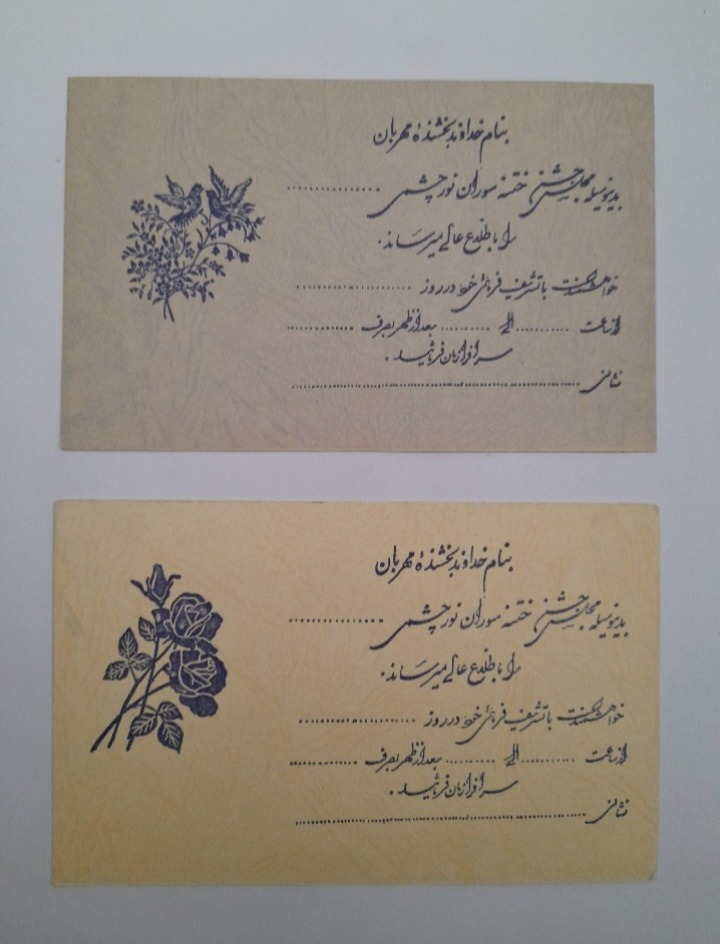 بنام خداوند بخشندهٔ مهربان
بدینوسیله مجلس جشن ختنه سوران نورچشمی ....................
را باطلاع عالی میرساند.
خواهشمند است با تشریف فرمائی خود در روز ........................
از ساعت ........... الی .......... بعدازظهر بصرف ..............
سرافرازمان فرمائید.
نشانی ............................................................
بنام خداوند بخشندهٔ مهربان
بدینوسیله مجلس جشن ختنه سوران نورچشمی ....................
را باطلاع عالی میرساند.
خواهشمند است با تشریف فرمائی خود در روز ........................
از ساعت ........... الی .......... بعدازظهر بصرف ..............
سرافرازمان فرمائید.
نشانی ............................................................